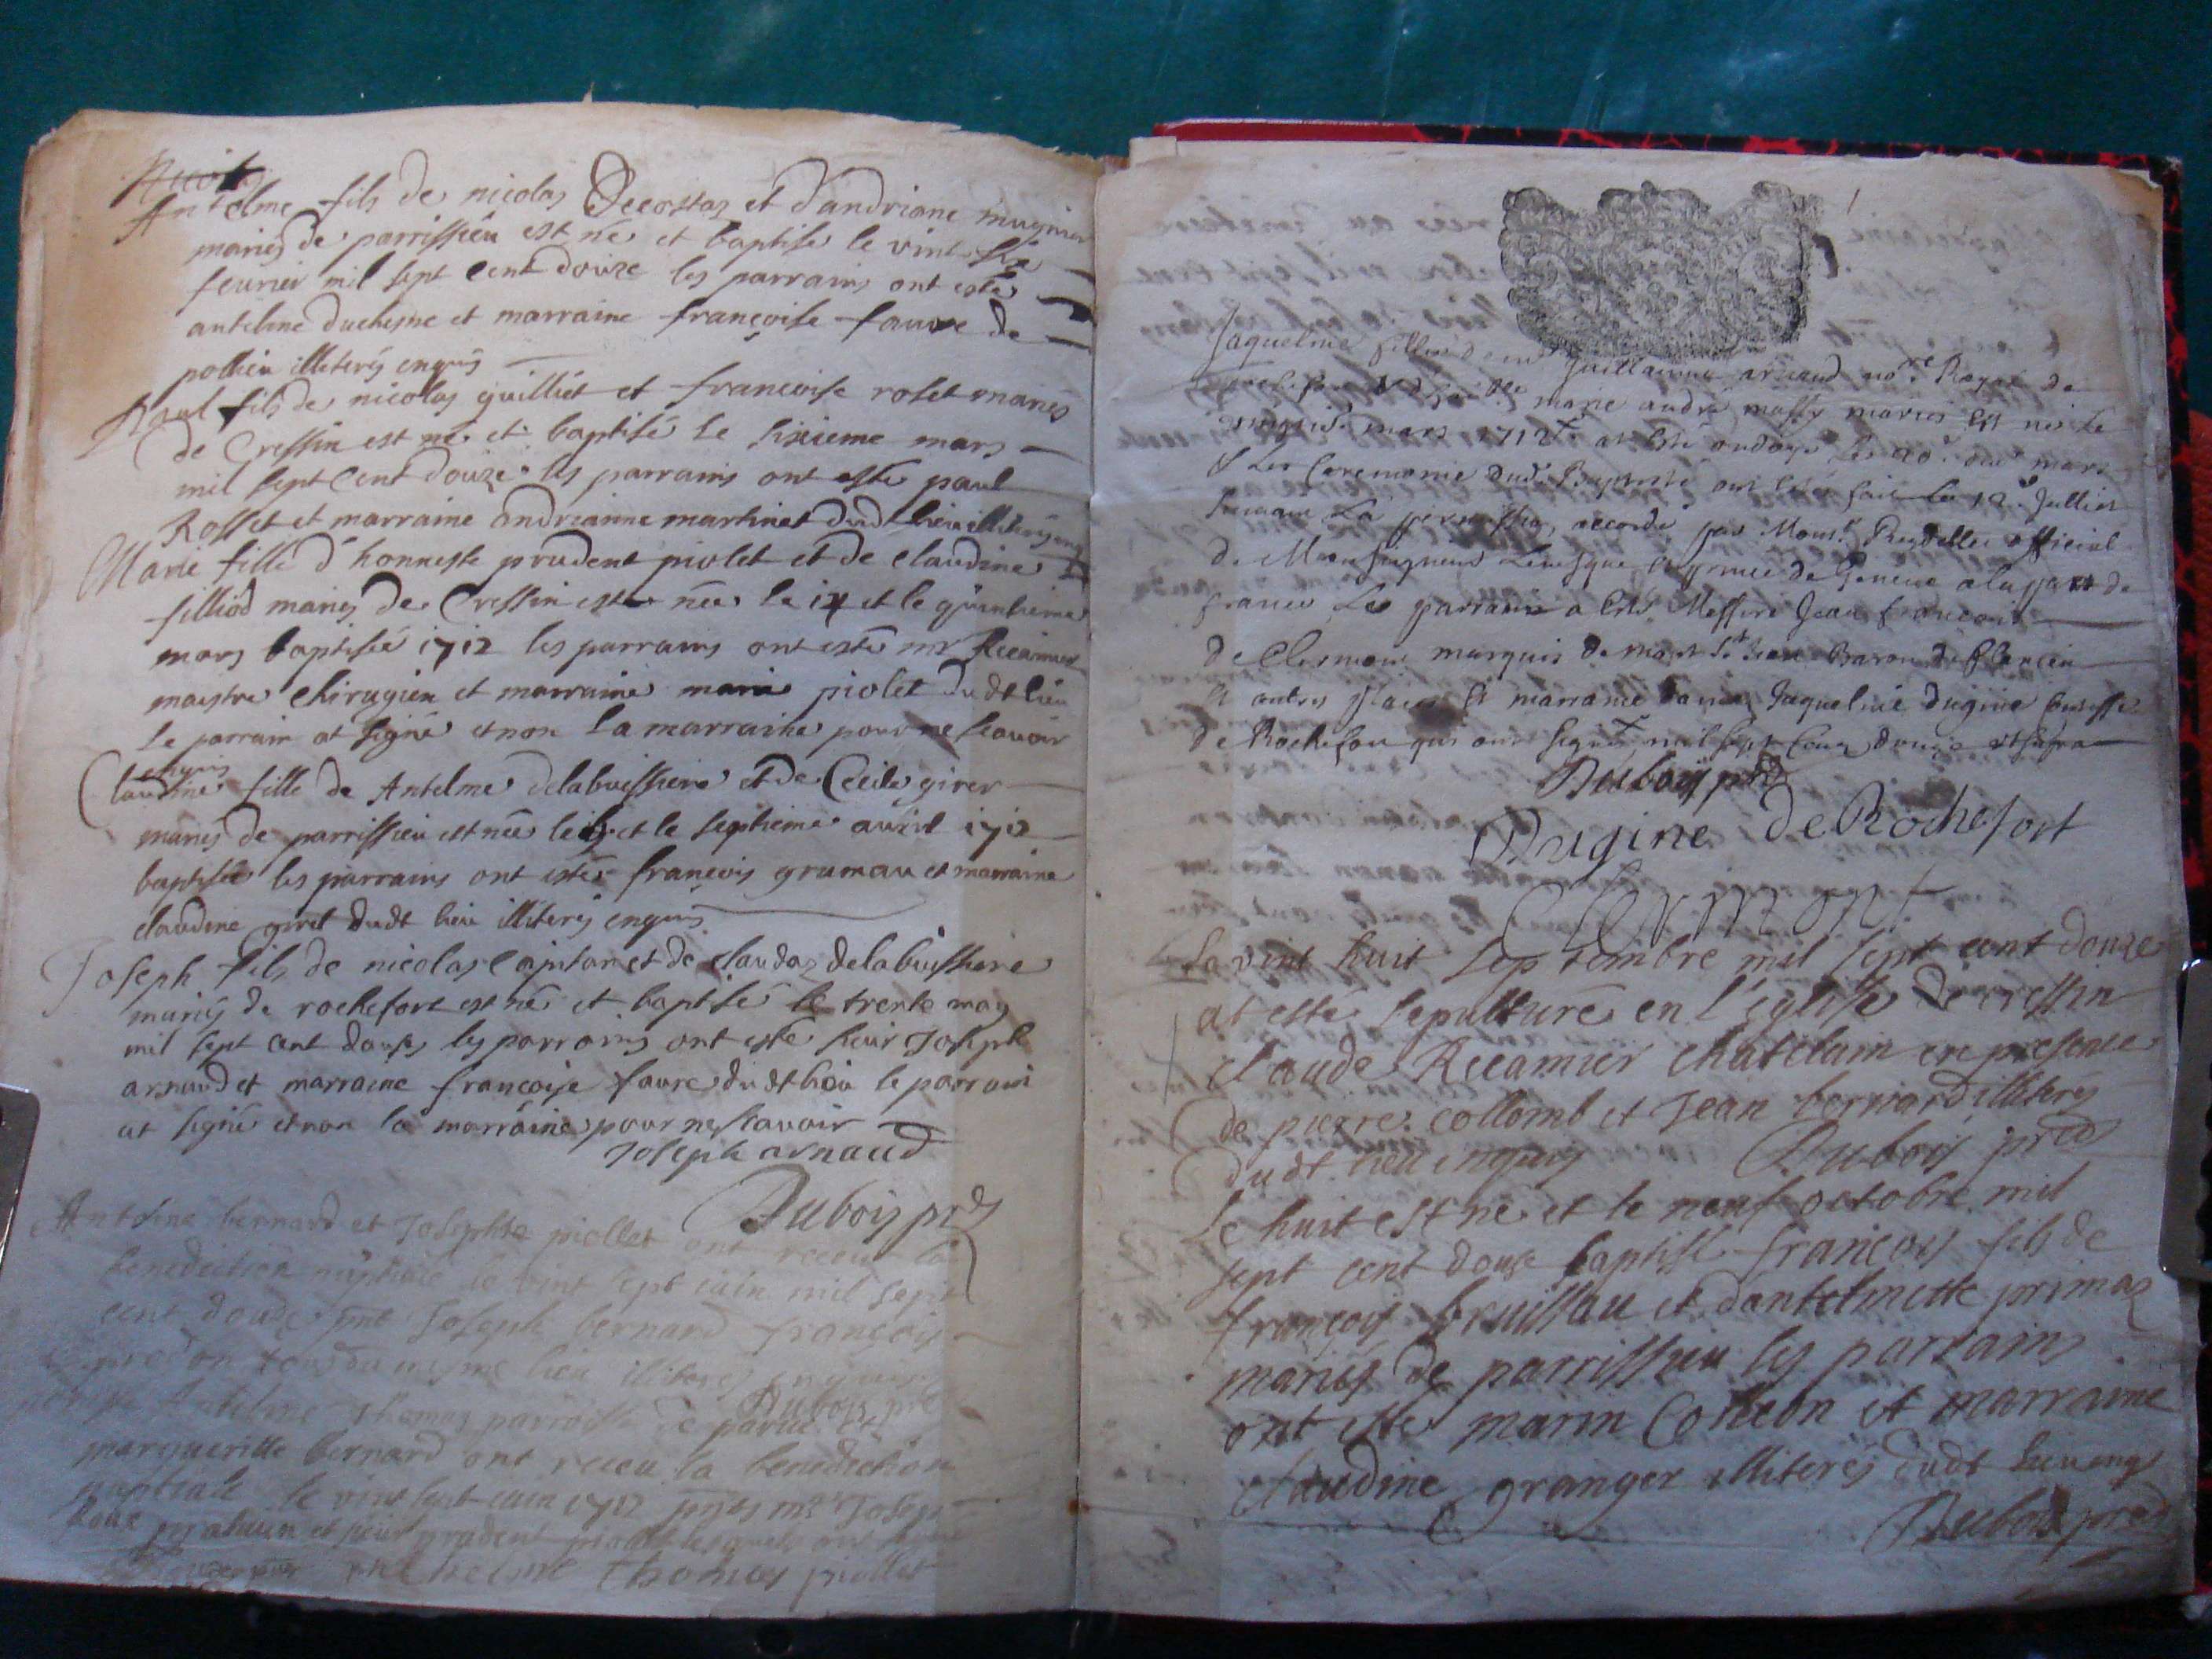 Antelme fils de nicolas Decostas et d'andriane mugnier
mariés de parrissieu est né et baptisé le vint
feurier mil sept Cent douze les parrains ont estés
antelme duchesne et marraine françoise faure de
pollieu illiterés enquis
Paul fils de nicolas guilliet et francoise roset mariés
de Cressin est né et baptisé le sixieme mars
mil sept Cent douze les parrains ont estés paul
Rosset et marraine andrianne martinet dudt lieu illiterés enq
Marie fille d'honneste prudent piolet et de claudine
filliod mariés de Cressin est née le et le quinzieme
mars baptisée 1712 les parrains ont estés mr Recamier
maistre chirugien et marraine marie piolet dudt lieu
le parrain at signé et non la marraine pour ne scauoir
enquis
Claudine fille de Antelme delabuissiere et de Cecile girer
mariés de parrissieu est née le et le septieme auril 1712
baptisée les parrains ont estés françois grumau et marraine
claudine giret dudt lieu illiterés enquis
Joseph fils de nicolas Capitan et de claudaz delabuissiere
mariés de rochefort est né et baptisé le trente may
mil sept cent douse les parrains ont estés sieur Joseph
arnaud et marraine francoise faure dudt lieu le parrain
at signé et non la marraine pour ne scauoir
Joseph arnaud
Dubois
Antoine bernard et Josephte piollet ont receu la
benediction nuptiale le vint sept iuin mil sept
cent douze pnt Joseph bernard françois
tous du mesme lieu illiterés enquis
Dubois
Antelme Thomas parroisse de parue et
margueritte bernard ont receu la benediction
nuptiale le vint sept iuin 1712 pnts mr Joseph
et sieur prudent piollet lesquels ont signé
anthelme Thomas piollet
Jaqueline fillie de mr Guillaume arnaud nore Royal de
Rochefort et de dlle marie andré massy mariés est née le
mars 1712 at esté ondoyé le 20e dud mars
& les Ceremonie dud Baptesme ont esté fait le 12e Jullies
suiuant La permission accordé par Monsr official
de Monseigneur Leuesque et prince de Geneue a la part de
france Les parrains a esté Messire Jean francois
De Clermont marquis de mont St Jean Baron de flaccieu
et autres places et marraine dame Jaqueline dugine Contesse
de Rochefort qui ont signés mil sept Cens douze
Dubois
Dugine de Rochefort
Clermont
Le vint huit septembre mil sept cent douze
at esté sepulturé en l'eglise de cressin
claude Recamier chatelain en presence
de pierre collomb et Jean bernard illiterés
dudt lieu enquis Dubois
Le huit est né et le neuf octobre mil
sept cent douse baptisé françois fils de
françois bruissau et d'antelmette primaz
mariés de parrissieu les parrains
ont estés marin Collebn et marraine
claudine granger illiterés dudt lieu enqs
Dubois